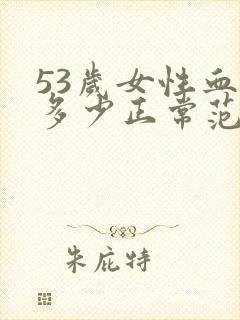 53歲女性血
多少正常范
朱庇特